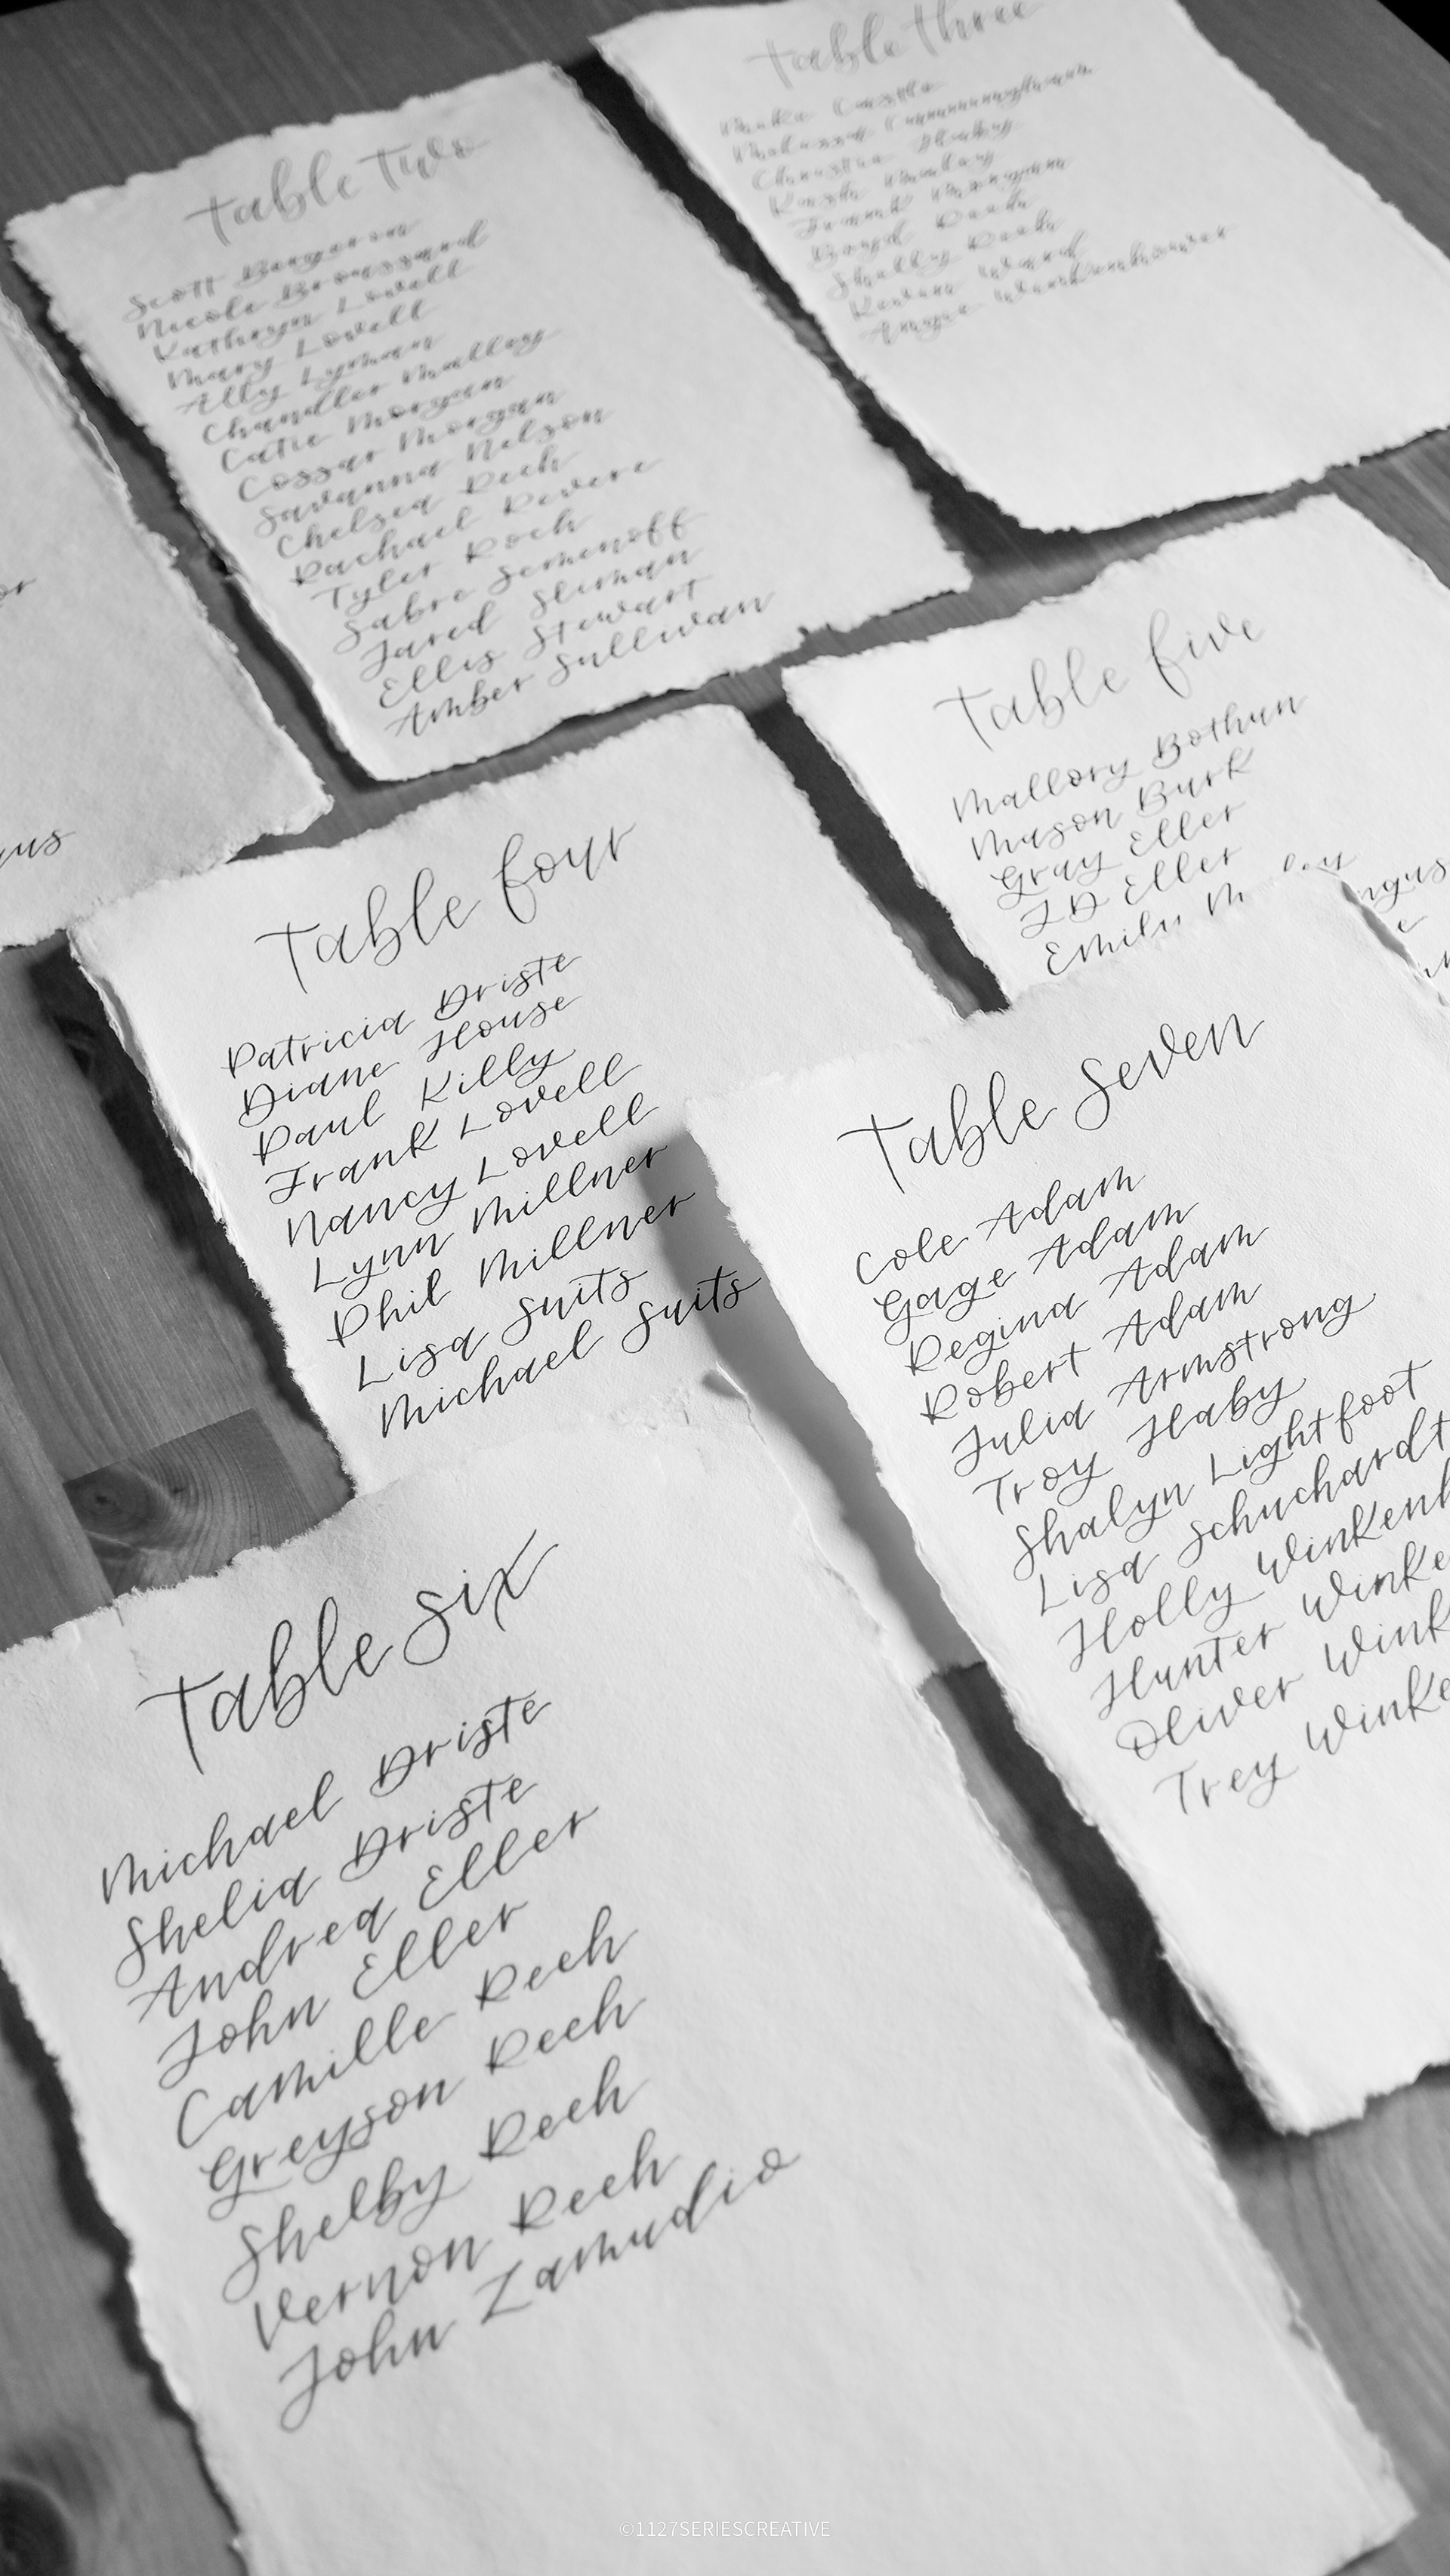 Table two
Scott Bergeron
Nicole Broussard
Kathryn Lovell
Mary Lovell
Ally Lyman
Chandler Mallory
Catie Morgan
Cossar Morgan
Savanna Nelson
Chelsea Reeh
Rachael Revere
Tyler Roch
Sabre Semenoff
Jared Sliman
Ellis Stewart
Amber Sullivan
Table three
Boyd Reeh
Shelby Reeh
Table four
Patricia Driste
Diane House
Paul Killy
Frank Lovell
Nancy Lovell
Lynn Millner
Phil Millner
Lisa Suits
Michael Suits
Table five
Mallory Bothun
Mason Burk
Gray Eller
JD Eller
Emily M
Table six
Michael Driste
Shelia Driste
Andrea Eller
John Eller
Camille Reeh
Greyson Reeh
Shelby Reeh
Vernon Reeh
John Zamudio
Table seven
Cole Adam
Gage Adam
Regina Adam
Robert Adam
Julia Armstrong
Troy Haby
Shalyn Lightfoot
Lisa Schuchardt
Holly Winkenh
Hunter Winke
Oliver Wink
Trey Winke
©1127SERIESCREATIVE